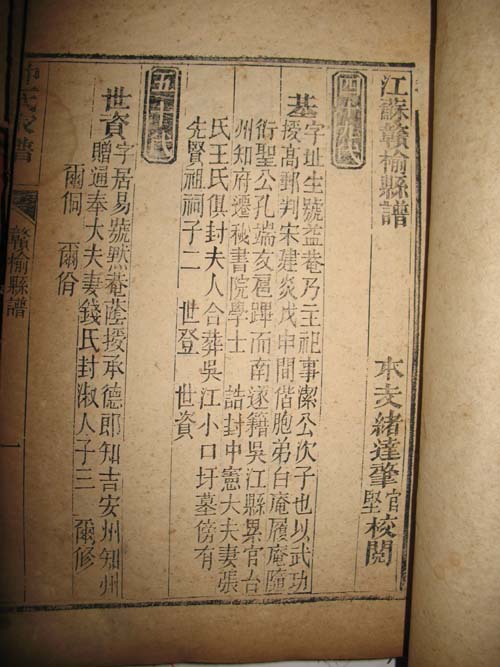 江蘇贛榆縣譜 本支緒達肇官堅校閱
基 字址生號益菴乃主祀事潔公次子也以武功
授高郵判宋建炎戊申間偕胞弟白庵履庵隨
衍聖公孔端友扈蹕而南遂籍吳江縣累官台
州知府遷秘書院學士 誥封中憲大夫妻張
氏王氏俱封夫人合葬吳江小口圩墓傍有
先賢祖祠子二 世登 世資
世資 字居易號默菴蔭授承德郎知吉安州知州
贈通奉大夫妻錢氏封淑人子三 爾修
爾侗 爾佾
氏家譜 贛榆縣譜 一